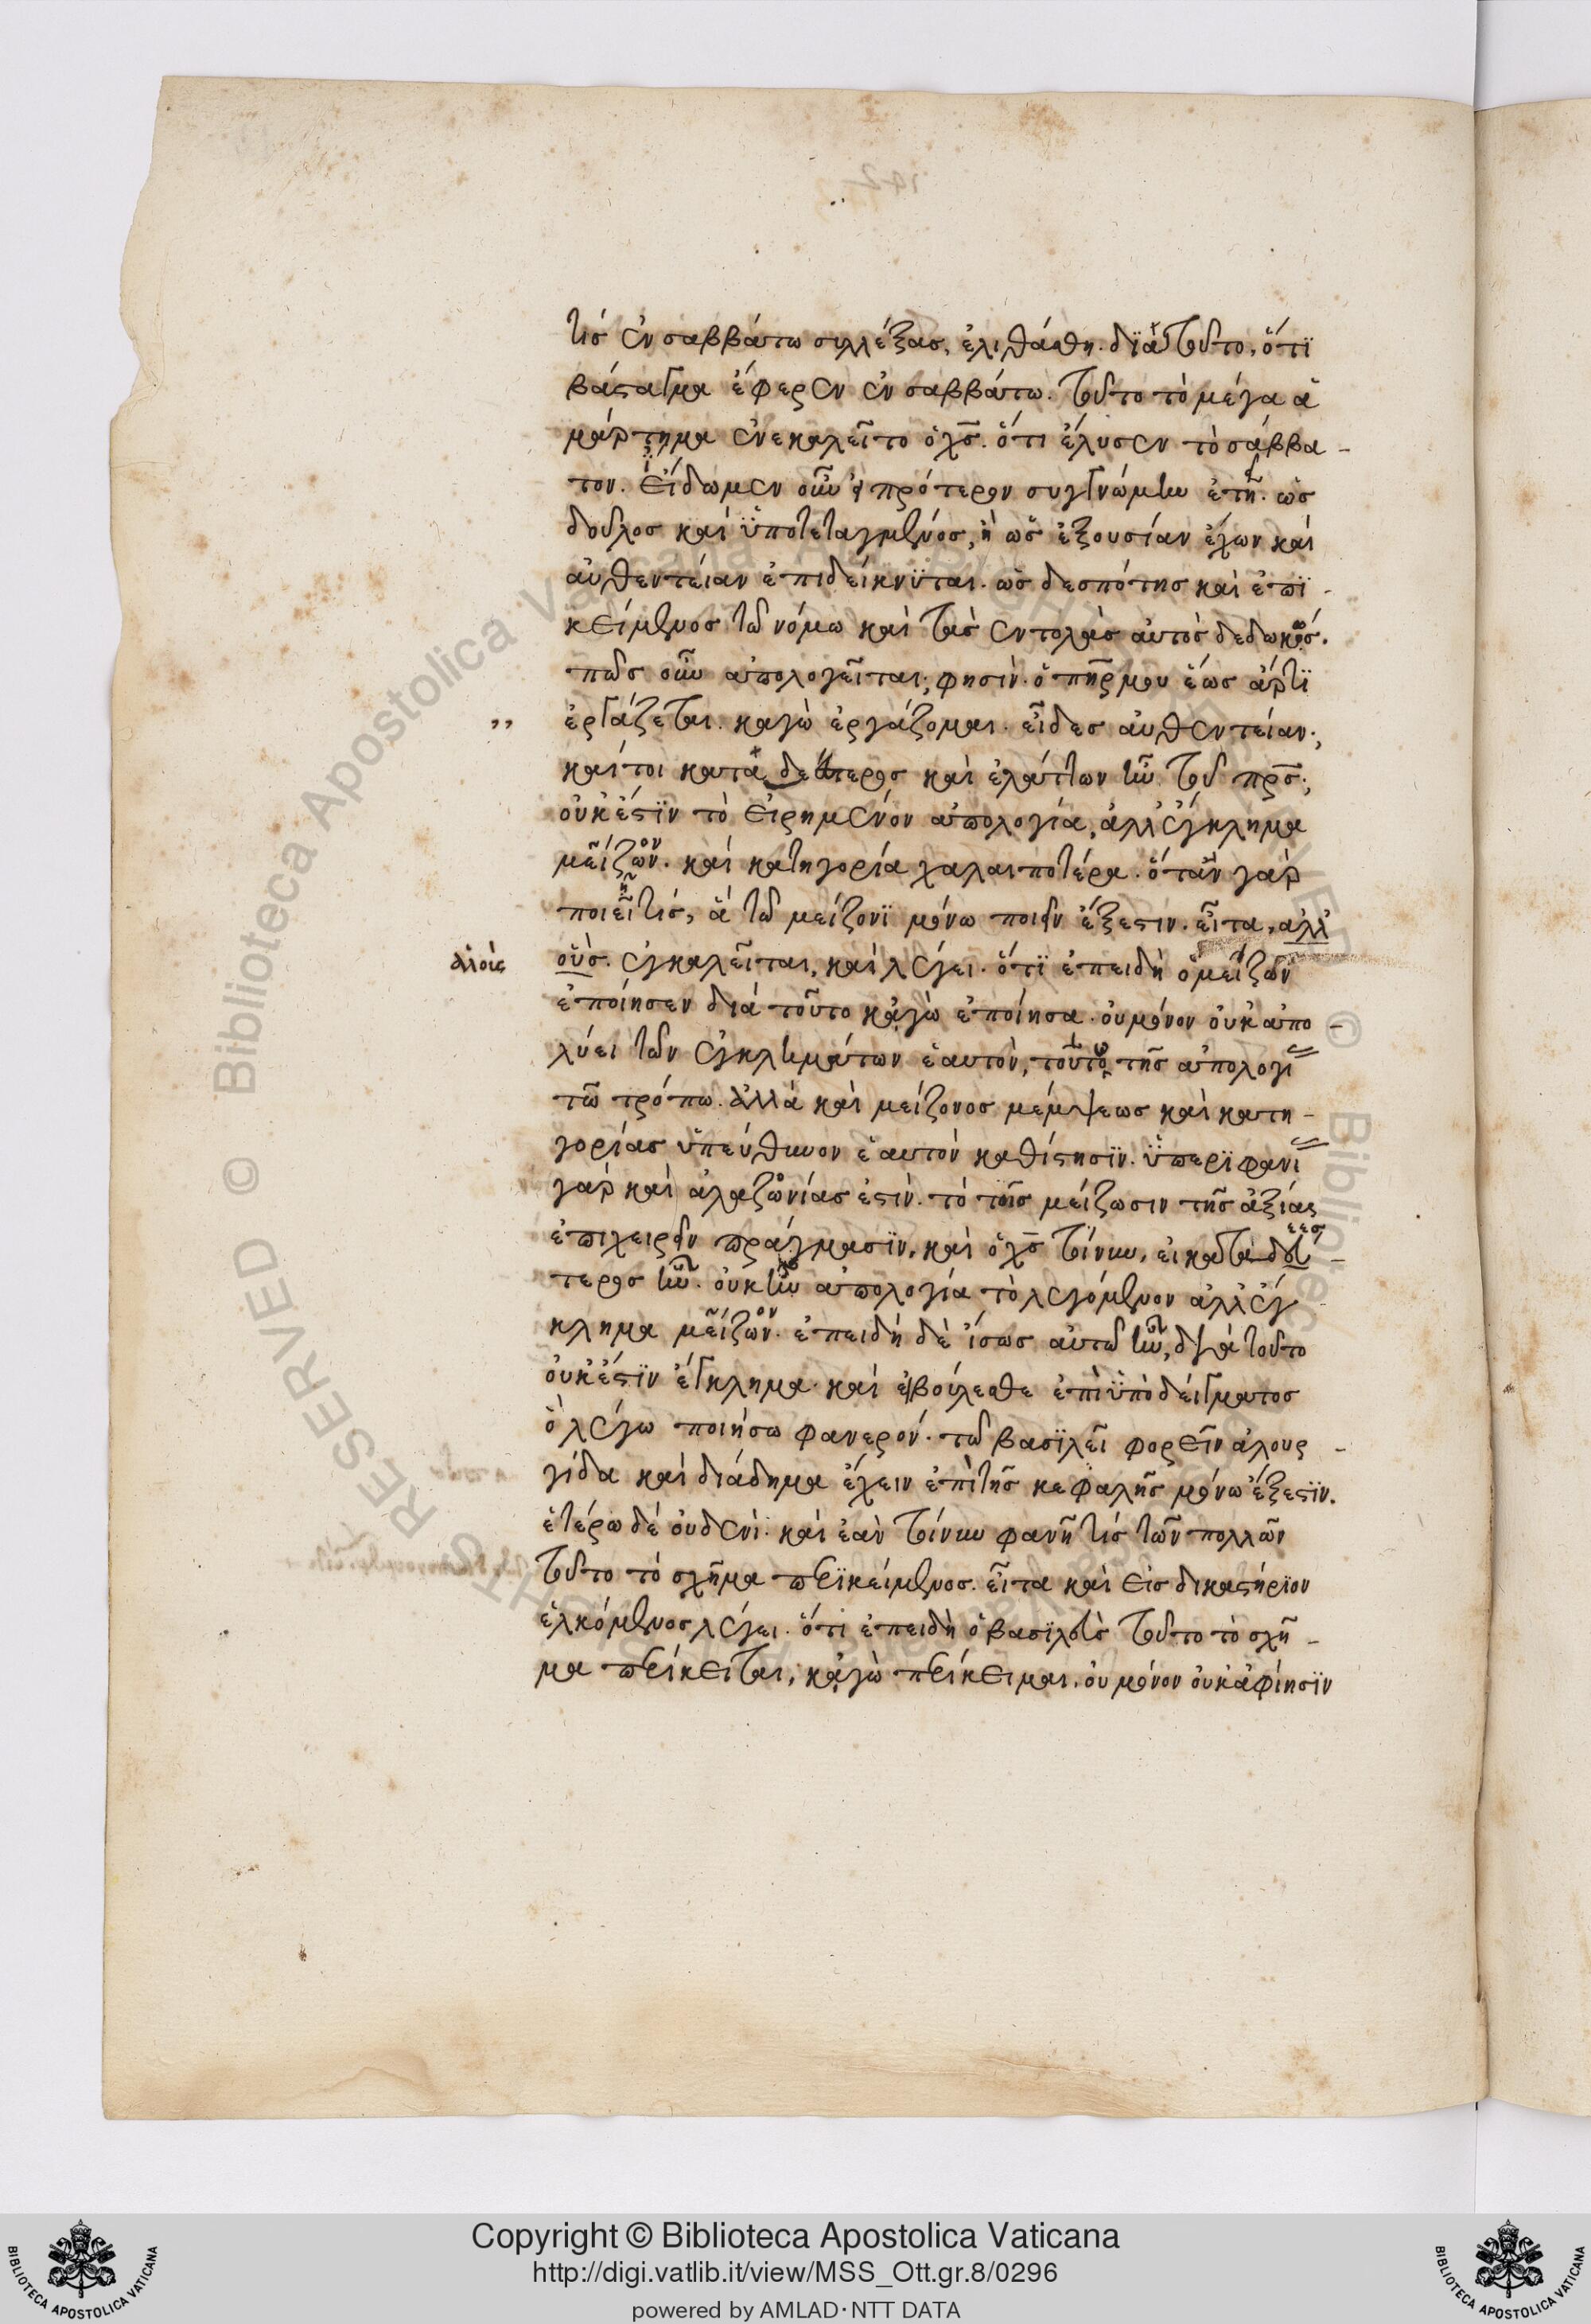 τίς ἐν σαββάτω συλλέξας, ἐλιθάσθη. διὰ τοῦτο, ὅτϊ
βάσταγμα ἔφερεν ἐν σαββάτω. τοῦτο τὸ μέγα ἁ
μάρτημα ἐνεκαλεῖτο ὁ χς̅. ὅτι ἔλυσεν τὸ σάββα -
τον. εἴδωμεν οὖν πρότερον συγγνώμην ἐτῆ. ὡς
δοῦλος καὶ ὑποτεταγμένος, ἢ ὡς ἐξουσίαν ἔχων καὶ
αὐθεντείαν ἐπιδείκνϋται. ὡς δεσπότης καὶ ἐπϊ -
κείμενος τῶ νόμω καὶ τὰς ἐντολὰς αὐτὸς δεδωκώς.
πῶς οὖν ἀπολογεῖται; φησὶν. ὁ πηρ̅ μου ἕως ἄρτϊ
,, ἐργάζεται. καγὼ ἐργάζομαι. εἶδες αὐθεντείαν;
καίτοι κατὰ δεύτερος καὶ ἐλάττων ἦν τοῦ πρς̅;
οὐκ ἔστϊν τὸ εἰρημένον ἀπολογία, ἀλλ' ἔγκλημα
μεῖζον. καὶ κατηγορία χαλαιποτέρα. ὅταν γὰρ
ποιεῖ τίς, ἃ τῶ μείζονϊ μόνω ποιεῖν ἔξεστιν. εἶτα, αλλ
αλοιε οὺς. ἐγκαλεῖται, καὶ λέγει. ὅτϊ ἐπειδὴ ὁ μείζων
ἐποίησεν διὰ τοῦτο κἀγὼ ἐποίησα. οὐ μόνον οὐκ ἀπο -
λύει τῶν ἐγκλημάτων ἑαυτὸν, τούτω τῆς ἀπολογί
τῶ τρόπω. ἀλλὰ καὶ μείζονος μέμψεως καὶ κατη -
γορίας ὑπεύθυνον ἑαυτὸν καθίστησϊν. ὑπερϊφανί
γὰρ καὶ ἀλαζονίας ἐστὶν. τὸ τοῖς μείζωσιν τῆς ἀξίας
ἐπιχειρεῖν πράγμασϊν. καὶ ὁ χς̅ τοίνυν, εἰ κατὰ δεύ -
τερος ἦν. οὐκ ἦν ἀπολογία τὸ λεγόμενον ἀλλ' ἔγ
κλημα μεῖζον. ἐπειδὴ δὲ ἴσως αὐτῶ ἦν, διὰ τοῦτο
οὐκ ἔστϊν ἔγκλημα. καὶ εἰ βούλεσθε ἐπὶ ὑποδείγματος
ὃ λέγω ποιήσω φανερόν. τῶ βασϊλεῖ φορεῖν ἁλουρ -
γίδα καὶ διάδημα ἔχειν ἐπὶ τῆς κεφαλῆς μόνω ἔξεστϊν.
ἑτέρω δὲ οὐδενὶ. καὶ ἐὰν τοίνυν φανῆ τίς τῶν πολλῶν
τοῦτο τὸ σχῆμα περϊκείμενος. εἶτα καὶ εἰς δικαστήρϊον
ἑλκόμενος λέγει. ὅτι ἐπειδὴ ὁ βασϊλεὺς τοῦτο τὸ σχῆ -
μα περίκειται, κἀγὼ περίκειμαι. οὐ μόνον οὐκ ἀφίησϊν
Copyright © Biblioteca Apostolica Vaticana
http://digi.vatlib.it/view/MSS_Ott.gr.8/0296
powered by AMLAD·NTT DATA